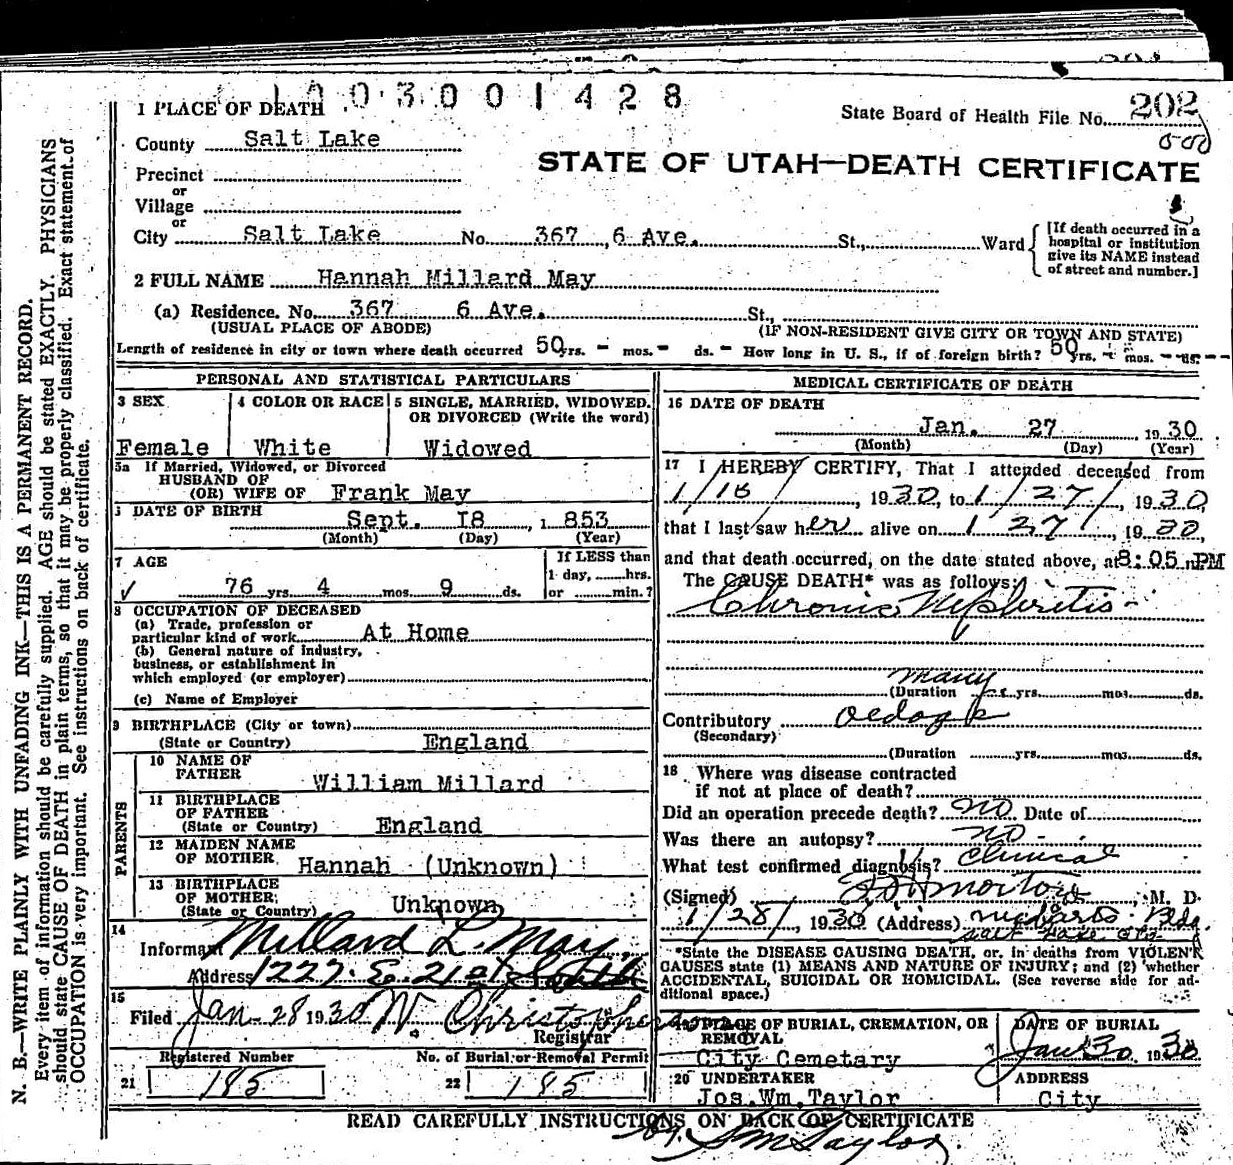 1003001428
1 PLACE OF DEATH
State Board of Health File No. 202
County Salt Lake
STATE OF UTAH—DEATH CERTIFICATE
Precinct
or
Village
or
City Salt Lake No. 367 , 6 Ave. St., Ward
[If death occurred in a
hospital or institution
give its NAME instead
of street and number.]
2 FULL NAME Hannah Millard May
(a) Residence. No. 367 6 Ave. St.,
(USUAL PLACE OF ABODE) (IF NON-RESIDENT GIVE CITY OR TOWN AND STATE)
Length of residence in city or town where death occurred 50 yrs. - mos. - ds. - How long in U. S., if of foreign birth? 50 yrs. - mos. - ds. -
PERSONAL AND STATISTICAL PARTICULARS
3 SEX
Female
4 COLOR OR RACE
White
5 SINGLE, MARRIED, WIDOWED,
OR DIVORCED (Write the word)
Widowed
5a If Married, Widowed, or Divorced
HUSBAND OF
(OR) WIFE OF Frank May
DATE OF BIRTH
Sept. 18 , 1 853
(Month) (Day) (Year)
7 AGE
76 yrs. 4 mos. 9 ds.
If LESS than
1 day, hrs.
or min.?
8 OCCUPATION OF DECEASED
(a) Trade, profession or
particular kind of work At Home
(b) General nature of industry,
business, or establishment in
which employed (or employer)
(c) Name of Employer
9 BIRTHPLACE (City or town)
(State or Country) England
PARENTS
10 NAME OF
FATHER William Millard
11 BIRTHPLACE
OF FATHER
(State or Country) England
12 MAIDEN NAME
OF MOTHER Hannah (Unknown)
13 BIRTHPLACE
OF MOTHER
(State or Country) Unknown
14
Informant Millard L. May
Address 1227 E. 21st South
15
Filed Jan 28 1930 W Christopherson
Registrar
Registered Number No. of Burial or Removal Permit
21 185 22 185
MEDICAL CERTIFICATE OF DEATH
16 DATE OF DEATH
Jan. 27 1930
(Month) (Day) (Year)
17 I HEREBY CERTIFY, That I attended deceased from
1/18/, 1930, to 1/27/, 1930,
that I last saw her alive on 1 27/, 1930,
and that death occurred, on the date stated above, at 8:05 PM
The CAUSE DEATH* was as follows:
Chronic Nephritis -
many
(Duration yrs. mos. ds.
Contributory
(Secondary)
(Duration yrs. mos. ds.
18 Where was disease contracted
if not at place of death?
Did an operation precede death? no Date of
Was there an autopsy? no -
What test confirmed diagnosis? Clinical
(Signed) Morton, M. D.
1/28/, 1930 (Address) Bdg
Salt Lake City
*State the DISEASE CAUSING DEATH, or, in deaths from VIOLENT
CAUSES state (1) MEANS AND NATURE OF INJURY; and (2) whether
ACCIDENTAL, SUICIDAL OR HOMICIDAL. (See reverse side for ad-
ditional space.)
19 PLACE OF BURIAL, CREMATION, OR
REMOVAL
City Cemetary
DATE OF BURIAL
Jan 30, 1930
20 UNDERTAKER
Jos.Wm.Taylor
ADDRESS
City
READ CAREFULLY INSTRUCTIONS ON BACK OF CERTIFICATE
By. S M Taylor
N. B.—WRITE PLAINLY WITH UNFADING INK—THIS IS A PERMANENT RECORD.
Every item of information should be carefully supplied. AGE should be stated EXACTLY. PHYSICIANS
should state CAUSE OF DEATH in plain terms, so that it may be properly classified. Exact statement of
OCCUPATION is very important. See instructions on back of certificate.